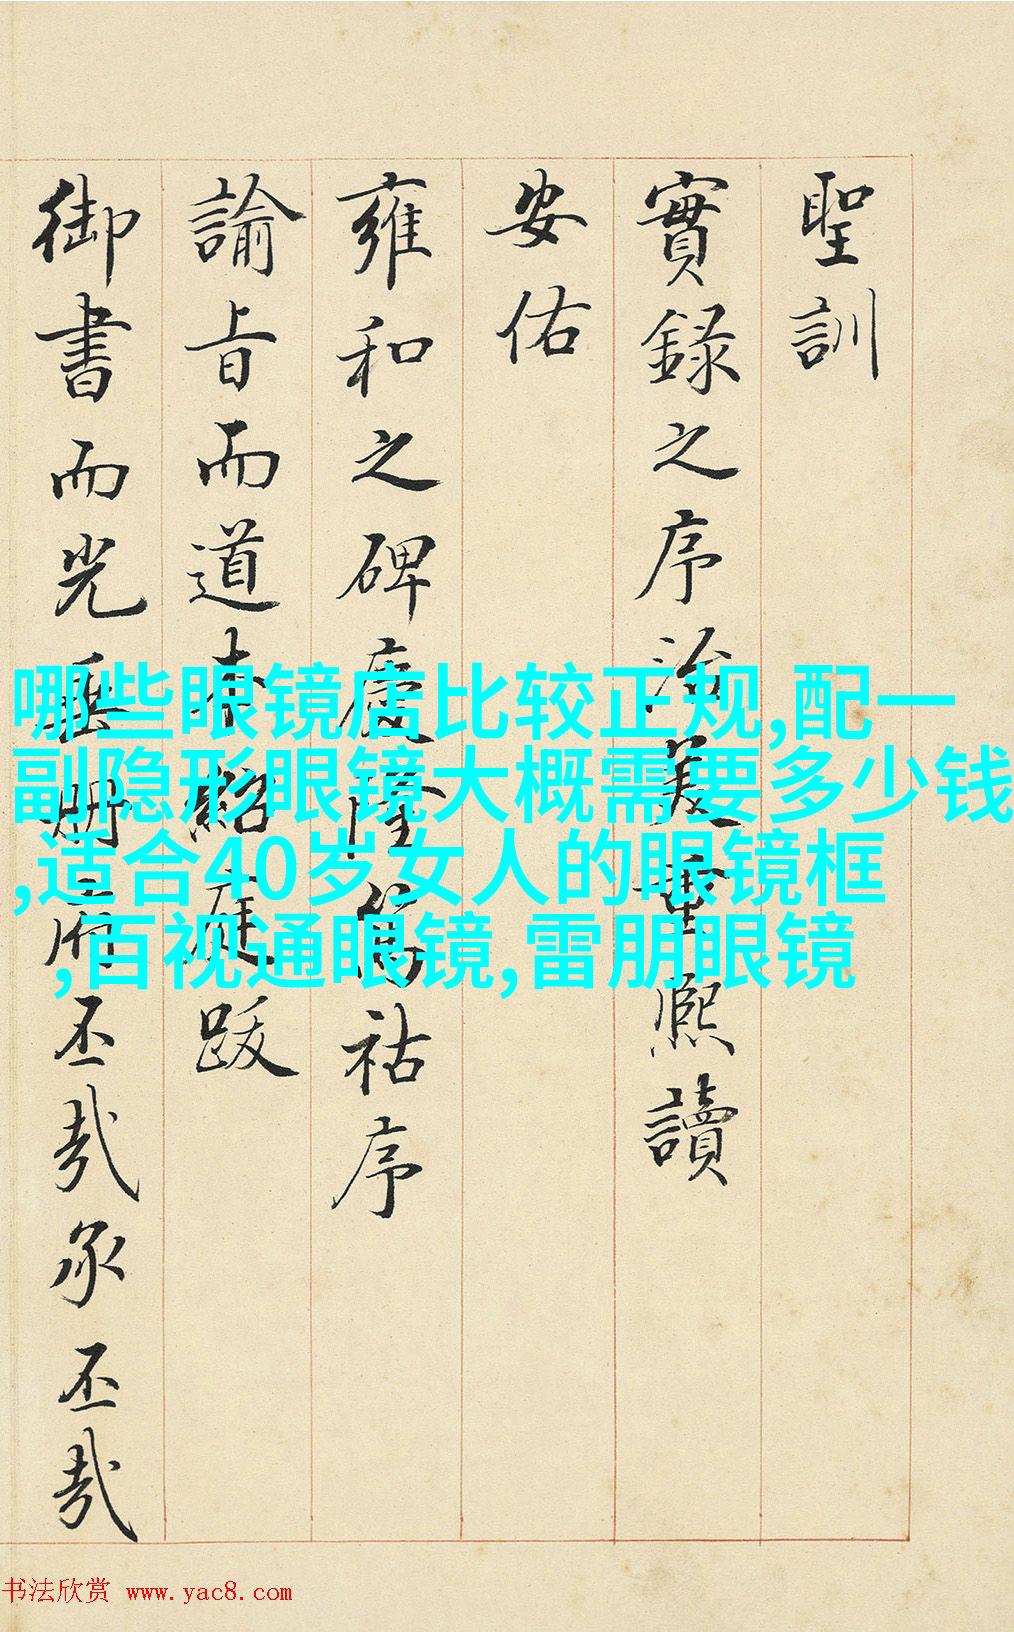 聖訓
實錄之序治美重熙讀
安佑
雍和之碑慶隆篤祜序
諭旨而道本紹庭跋
御書而光垂冊府丕哉承丕哉
哪些眼镜店比较正规,配一
副隐形眼镜大概需要多少钱
,适合40岁女人的眼镜框
,百视通眼镜,雷朋眼镜
书法欣赏 www.yac8.com